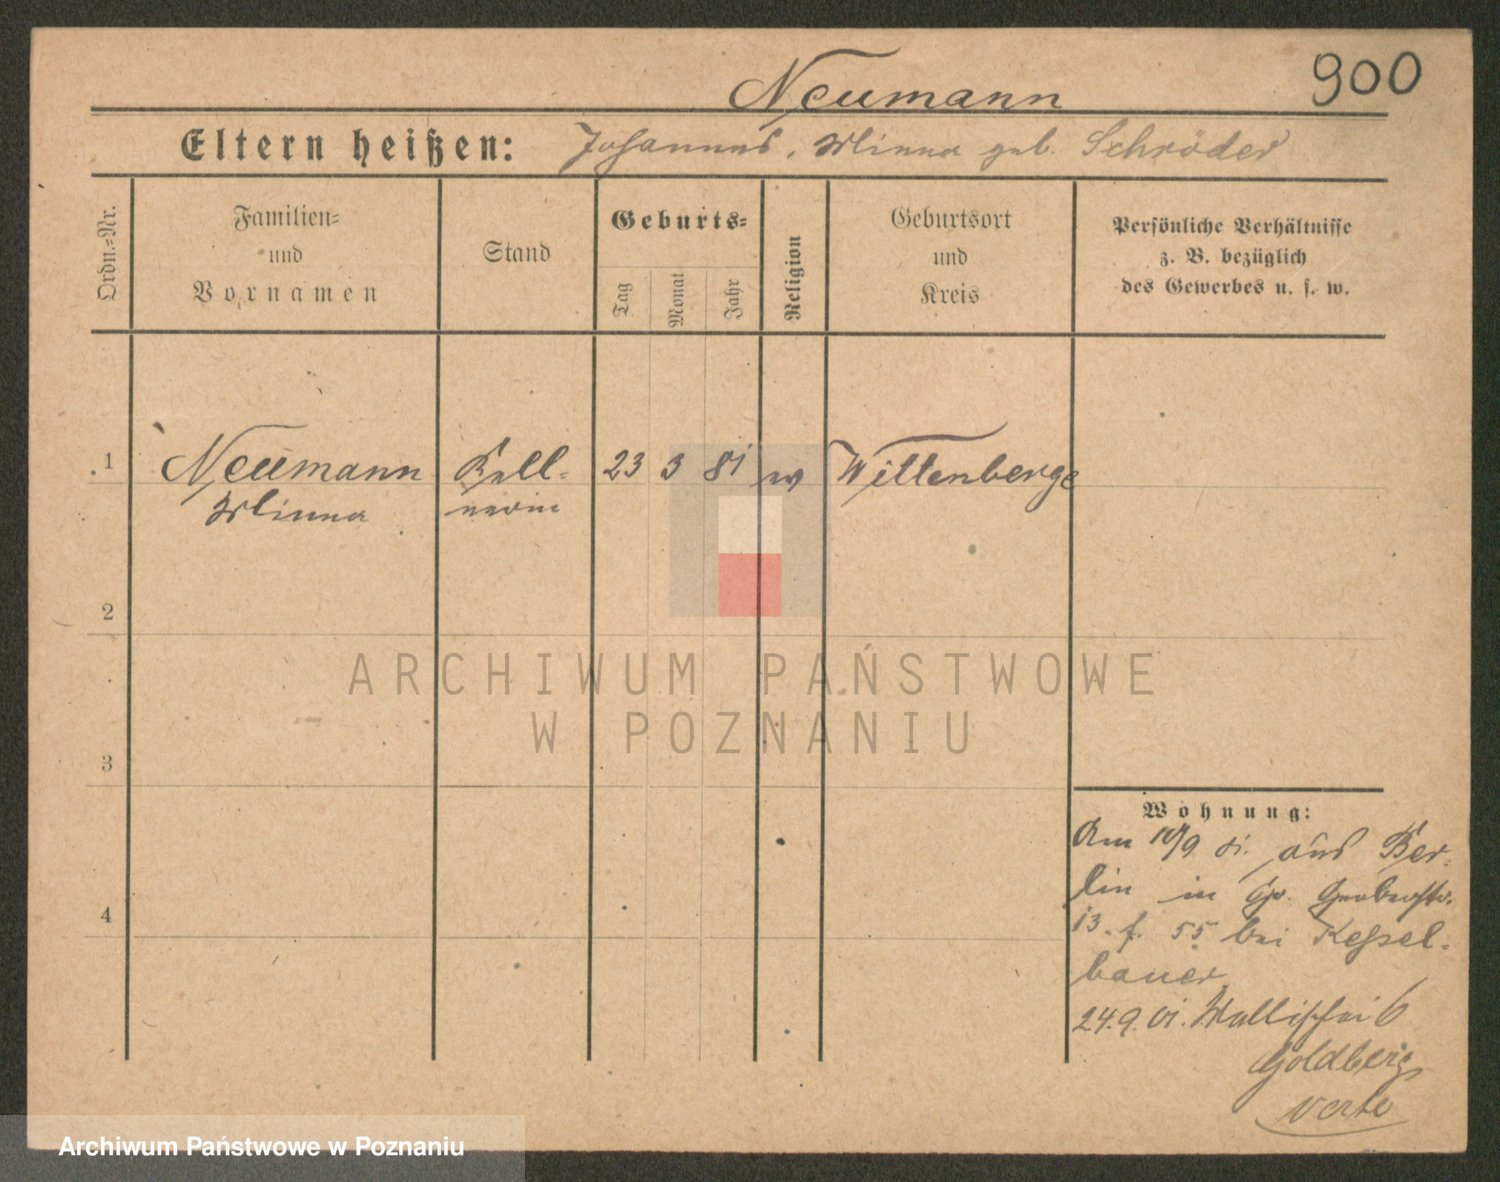 900
Neumann
Eltern heißen: Johannes, Minna geb. Schröder
Ordn.=Nr.
Familien=
und
Vornamen
Stand
Geburts=
Tag
Monat
Jahr
Religion
Geburtsort
und
Kreis
Persönliche Verhältnisse
z. B. bezüglich
des Gewerbes u. s. w.
1 Neumann Kell= 23 3 81 w Wittenberge
Minna nerin
2
3
4
Wohnung:
Am 10/9 01. aus Ber=
lin in
13. f. 55 bei Kessel=
bauer
24.9.01. Wallischei 6
Goldberg
verte
ARCHIWUM PAŃSTWOWE
W POZNANIU
Archiwum Państwowe w Poznaniu